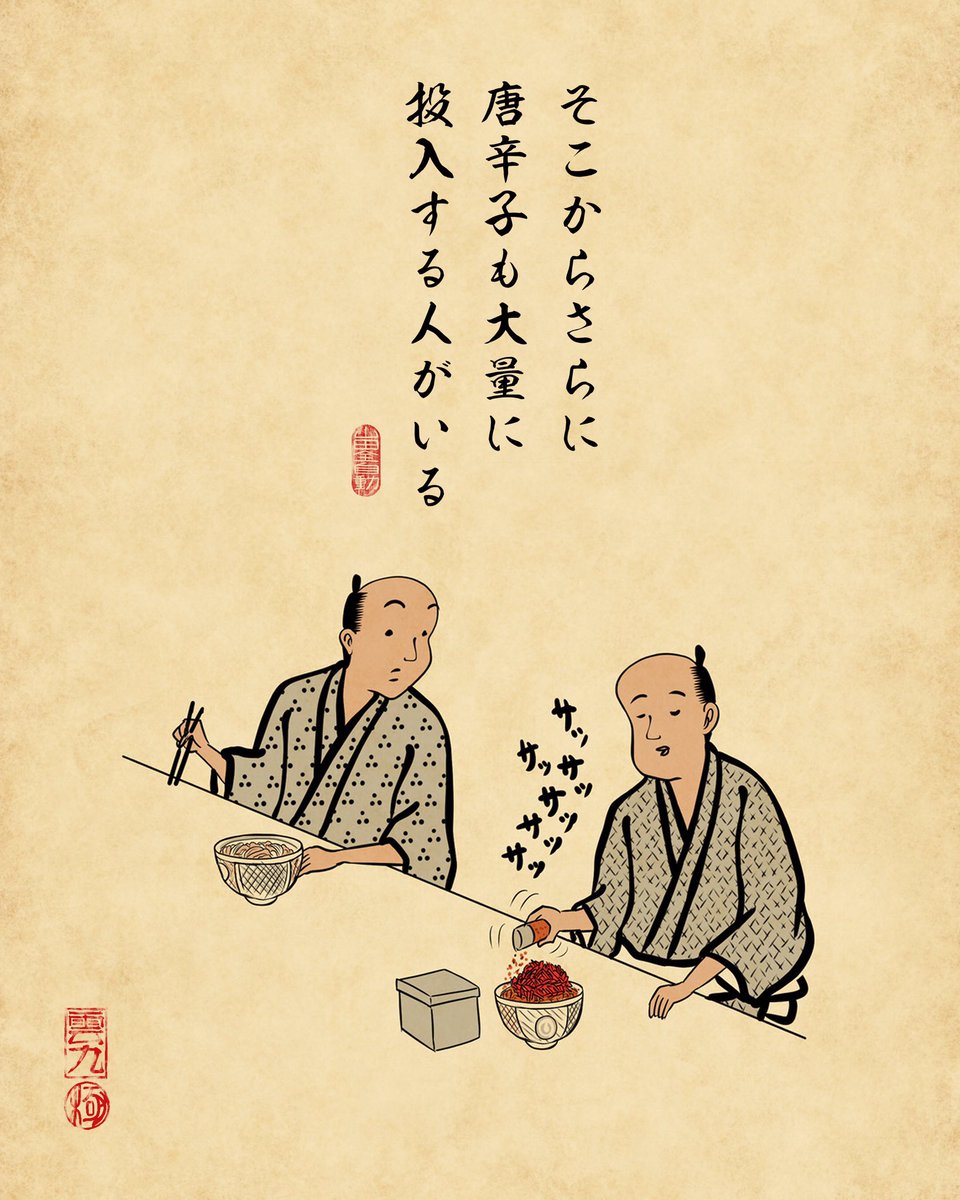 そこからさらに
唐辛子も大量に
投入する人がいる
サッ
サッ
サッ
サッ
サッ
サッ